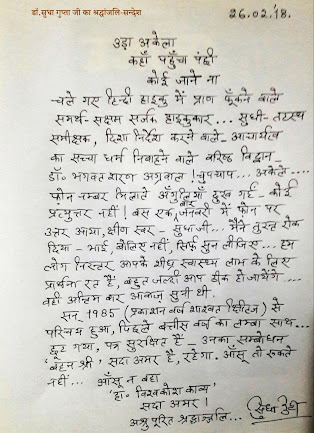 डॉ.सुधा गुप्ता जी का श्रद्धांजलि-सन्देश
26.02.'18.
उड़ा अकेला
कहाँ पहुँचा पंछी
कोई जाने ना
-चले गए हिन्दी हाइकु में प्राण फूँकने वाले
समर्थ-सक्षम सर्जक हाइकुकार ... सुधी-तटस्थ
समीक्षक, दिशा निर्देश करने वाले- आचार्यत्व
का सच्चा धर्म निबाहने वाले वरिष्ठ विद्वान-
डॉ० भगवत शरण अग्रवाल ! चुपचाप ... अकेले ....
फ़ोन नम्बर मिलाते अँगुलियाँ दुख गईं - कोई
प्रत्युत्तर नहीं ! बस एक बार जनवरी में फ़ोन पर
उत्तर आया, क्षीण स्वर - सुधाजी... मैंने तुरन्त रोक
दिया - भाई बोलिए नहीं, सिर्फ़ सुन लीजिए... हम
लोग निरन्तर आपके शीघ्र स्वास्थ्य लाभ के लिए
प्रार्थना रत हैं, बहुत जल्दी आप ठीक हो जायेंगे ...
वही अन्तिम बार आवाज़ सुनी थी.
सन् 1985 (प्रकाशन वर्ष शाश्वत क्षितिज) से
परिचय हुआ, पिछले बत्तीस वर्ष का लम्बा साथ...
छूट गया, पत्र सुरक्षित हैं - उनका सम्बोधन
'बहन श्री' सदा अमर है, रहेगा. आँसू तो रुकते
नहीं ... आँसू न बहा
'हा० विश्वकोश काव्य'
सदा अमर !
अश्रु पूरित श्रद्धाञ्जलि... सुधा गुप्ता